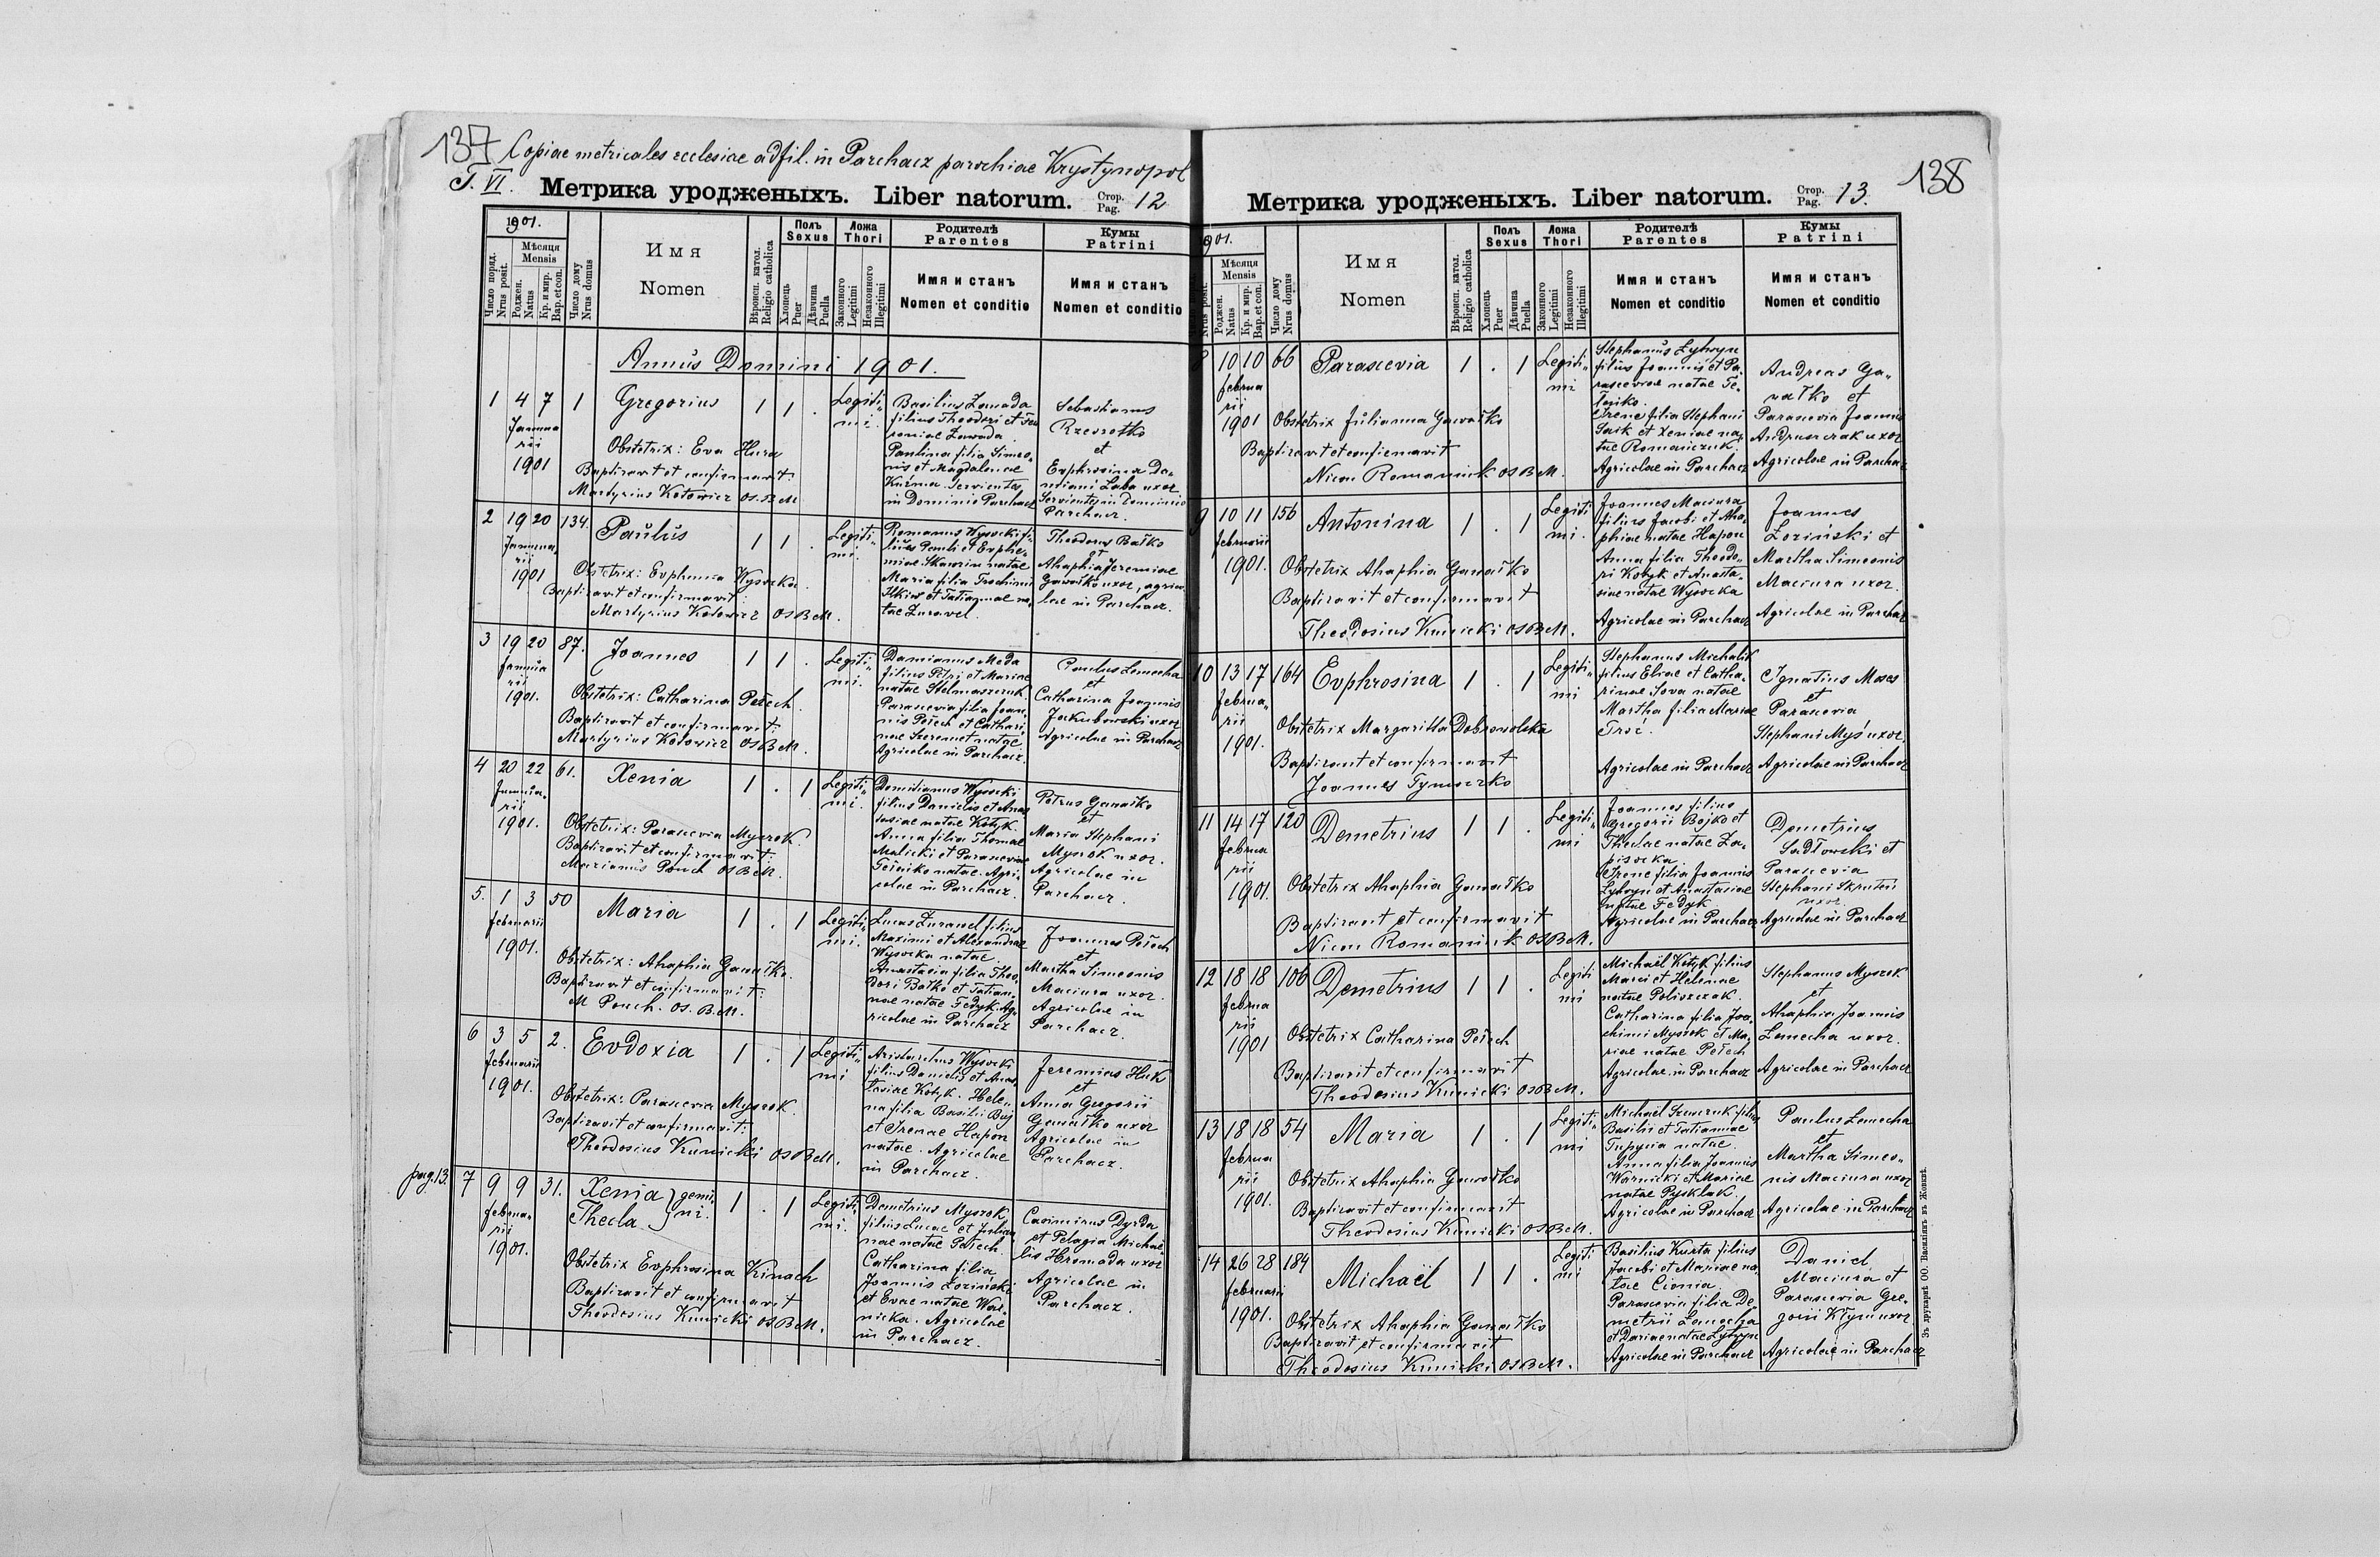 137 Copiae metricales ecclesiae adfil. in Parchacz parochiae Krystynopol
T. VI. Метрика уродженыхъ. Liber natorum. Стор. Pag. 12
1901.
Число поряд. Nrus posit.
Мѣсяця Mensis
Роджен. Natus
Кр. и мир. Bap. et con.
Число дому Nrus domus
Имя Nomen
Вѣроисп. катол. Religio catholica
Полъ Sexus
Хлопець Puer
Дѣвчина Puella
Ложа Thori
Законного Legitimi
Незаконного Illegitimi
Родителѣ Parentes
Имя и станъ Nomen et conditio
Кумы Patrini
Имя и станъ Nomen et conditio
Annus Domini 1901.
1 4 7 1 Gregorius 1 1 . Legiti-
mi.
Januarii
1901
Obstetrix: Eva Hura
Baptizavit et confirmavit:
Martyrius Kotowicz OSBM
Basilius Zawada
filius Theodori et
Zawada
Paulina filia Simeo-
nis et Magdalenae
Kuźma. Servientes
in Dominio Parchacz
Sebastianus
et
Euphrosina Da-
miani Łaba uxor
Servientes in Dominio
Parchacz.
2 19 20 134. Paulus 1 1 . Legiti-
mi.
Januarii
1901
Obstetrix: Euphemia Wysocka
Baptizavit et confirmavit:
Martyrius Kotowicz OSBM.
Romanus Wysocki fi-
lius Pauli et Euphe-
miae natae
Maria filia Joachimi
Ilkiw et Tatiannae na-
tae Żurawel
Theodorus Bałko
et
Ahaphia Jeremiae
Gawałko uxor, agrico-
lae in Parchacz.
3 19 20 87. Joannes 1 1 . Legiti-
mi.
Januarii
1901.
Obstetrix: Catharina Pełech
Baptizavit et confirmavit:
Martyrius Kotowicz OSBM.
Damianus Meda
filius Petri et Mariae
natae Stelmaszczuk
Parascevia filia Joan-
nis Pełech et Cathari-
nae Szeremet natae
Agricolae in Parchacz.
Paulus Lemecha
et
Catharina Joannis
Jakubowski uxor
Agricolae in Parchacz
4 20 22 61. Xenia 1 . 1 Legiti-
mi.
Januarii
1901.
Obstetrix: Parascevia Myszok
Baptizavit et confirmavit:
Marianus Powch OSBM.
Domitianus Wysocki
filius Danielis et Anas-
tasiae natae Kotyk.
Anna filia Thomae
Malicki et Parasceviae
natae. Agri-
colae in Parchacz.
Petrus Gawałko
et
Maria Stephani
Myszok uxor.
Agricolae in
Parchacz.
5. 1 3 50 Maria 1 . 1 Legiti-
mi.
februarii
1901.
Obstetrix: Ahaphia Gawałko.
Baptizavit et confirmavit:
M Powch. OS. B. M.
Lucas Żurawel filius
Maximi et Alexandrae
Wysocka natae.
Anastasia filia Theo-
dori Bałko et Tatian-
nae natae Fedyk. Ag-
ricolae in Parchacz
Joannes Pełech
et
Martha Simeonis
Maciura uxor.
Agricolae in
Parchacz.
6 3 5 2. Eudoxia 1 . 1 Legiti-
mi
februarii
1901.
Obstetrix: Parascevia Myszok.
Baptizavit et confirmavit:
Theodosius Kunicki OSBM.
Aristarchus Wysocki
filius Danielis et Anas-
tasiae Kotyk. Hele-
na filia Basilii Buj
et Irenae Hapon
natae. Agricolae
in Parchacz.
Jeremias Huk
et
Anna Gregorii
Gawałko uxor
Agricolae in
Parchacz.
pag. 13. 7 9 9 31. Xenia } gemi- 1 . 1 Legiti-
Thecla } ni. mi.
februarii
1901.
Obstetrix Euphrosina Kinach
Baptizavit et confirmavit
Theodosius Kunicki OSBM.
Demetrius Myszok
filius Lucae et Julian-
nae natae Pełech
Catharina filia
Joannis Łoziński
et Evae natae War-
nicka. Agricolae
in Parchacz.
Casimirus Dyrda
et Pelagia Michae-
lis Hromada uxor
Agricolae in
Parchacz.
138
Метрика уродженыхъ. Liber natorum. Стор. Pag. 13.
1901.
Nrus posit.
Мѣсяця Mensis
Роджен. Natus
Кр. и мир. Bap. et con.
Число дому Nrus domus
Имя Nomen
Вѣроисп. катол. Religio catholica
Полъ Sexus
Хлопець Puer
Дѣвчина Puella
Ложа Thori
Законного Legitimi
Незаконного Illegitimi
Родителѣ Parentes
Имя и станъ Nomen et conditio
Кумы Patrini
Имя и станъ Nomen et conditio
8 10 10 66 Parascevia 1 . 1 Legiti-
mi
februarii
1901
Obstetrix Julianna Gawałko
Baptizavit et confirmavit
Nicon Romaniuk OSBM.
Stephanus Łytwyn
filius Joannis et Pa-
rasceviae natae
Irene filia Stephani
et Xeniae na-
tae Romanczuk
Agricolae in Parchacz
Andreas Ga-
wałko et
Parascevia Joannis
Andruszczak uxor
Agricolae in Parchacz
9 10 11 156 Antonina 1 . 1 Legiti
mi.
februarii
1901.
Obstetrix Ahaphia Gawałko
Baptizavit et confirmavit
Theodosius Kunicki OSBM.
Joannes Maciura
filius Jacobi et Aha-
phiae natae Hapon
Anna filia Theodo-
ri Kotyk et Anasta-
siae natae Wysocka
Agricolae in Parchacz
Joannes
Łoziński et
Martha Simeonis
Maciura uxor.
Agricolae in Parchacz
10 13 17 164 Euphrosina 1 . 1 Legiti-
mi
februarii
1901.
Obstetrix Margaritta Dobrowolska
Baptizavit et confirmavit
Joannes Tymoczko
Stephanus Michalik
filius Eliae et Catha-
rinae Sova natae
Martha filia Mariae
Agricolae in Parchacz
Ignatius Moses
et
Parascevia
Stephani Myś uxor.
Agricolae in Parchacz
11 14 17 120 Demetrius 1 1 . Legiti-
mi
februarii
1901.
Obstetrix Ahaphia Gawałko
Baptizavit et confirmavit
Nicon Romaniuk OSBM.
Joannes filius
Gregorii Bojko et
Theclae natae Za-
pisocka
Irene filia Joannis
Łytwyn et Anastasiae
natae Fedyk
Agricolae in Parchacz
Demetrius
Sadłowski et
Parascevia
Stephani
uxor.
Agricolae in Parchacz
12 18 18 106 Demetrius 1 1 . Legiti
mi
februarii
1901
Obstetrix Catharina Pełech
Baptizavit et confirmavit
Theodosius Kunicki OSBM.
Michael Kotyk filius
Marci et Helenae
natae Poliszczak.
Catharina filia Joa-
chimi Myszok et Ma-
riae natae Pełech
Agricolae in Parchacz
Stephanus Myszok
et
Ahaphia Joannis
Lemecha uxor.
Agricolae in Parchacz
13 18 18 54 Maria 1 . 1 Legiti-
mi
februarii
1901.
Obstetrix Ahaphia Gawałko
Baptizavit et confirmavit
Theodosius Kunicki OSBM.
Michael Szewczuk filius
Basilii et Tatianae
natae.
Anna filia Joannis
Warnicki et Mariae
natae Pysklak.
Agricolae in Parchacz
Paulus Lemecha
et
Martha Simeo-
nis Maciura uxor
Agricolae in Parchacz
14 26 28 184 Michaël 1 1 . Legiti
mi
februarii
1901.
Obstetrix Ahaphia Gawałko
Baptizavit et confirmavit
Theodosius Kunicki OSBM.
Basilius Kurta filius
Jacobi et Mariae na-
tae
Parascevia filia De-
metrii Lemecha
et Dariae natae Łytwyn
Agricolae in Parchacz
Daniel
Maciura et
Parascevia Gre-
gorii Kłym uxor
Agricolae in Parchacz
Зъ друкарнѣ ОО. Василіянъ въ Жовквѣ.